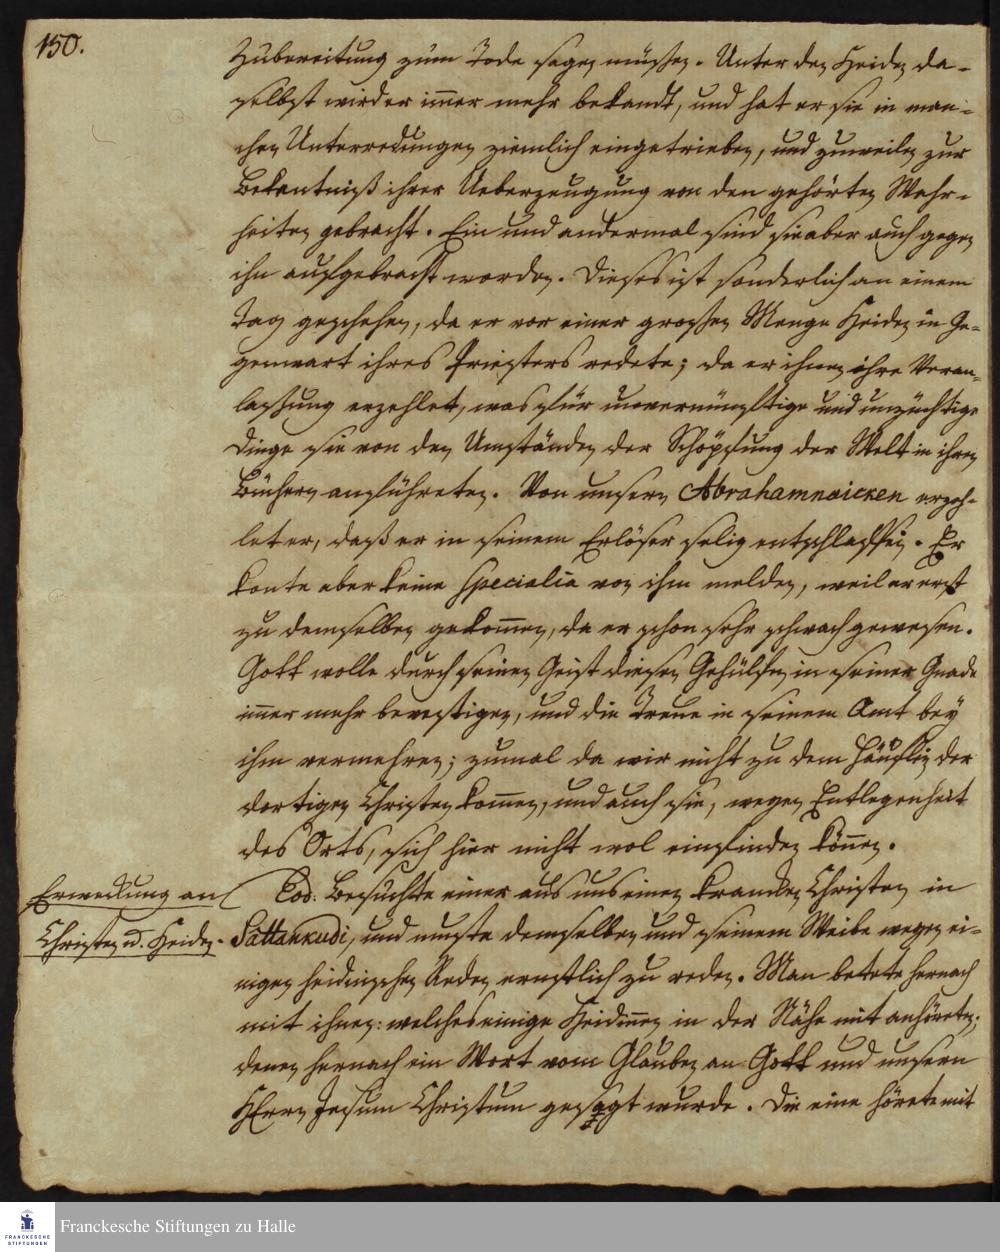 150.
Zubereitung zum Tode sagen müssen. Unter den Heiden da-
selbst wird er immer mehr bekandt, und hat er sie in man-
chen Unterredungen ziemlich eingetrieben, und zuweilen zur
Bekantniß ihrer Ueberzeugung von den gehörten Wahr-
heiten gebracht. Ein und andermal sind sie aber auch gegen
ihn aufgebracht worden. Dieses ist sonderlich an einem
Tag geschehen, da er vor einer grossen Menge Heiden in Ge-
genwart ihres Priesters redete; da er ihnen ihre Veran-
lassung erzehlet, was für unvernünftige und unzüchtige
Dinge sie von den Umständen der Schöpfung der Welt in ihren
Büchern anführeten. Von unsern Abrahamnaicken erzeh-
let er, daß er in seinem Erlöser selig entschlaffen. Er
konte aber keine specialia von ihm melden, weil er erst
zu demselben gekommen, da er schon sehr schwach gewesen.
Gott wolle durch seinen Geist diesen Gehülfen in seiner Gnade
immer mehr bevestigen, und die Treue in seinem Amt bey
ihm vermehren; zumal da wir nicht zu dem Häuflein der
dortigen Christen kommen, und auch sie, wegen Entlegenheit
des Orts, sich hier nicht wol einfinden können.
Erweckung an
Christen u. Heiden.
Eod. Besuchte einer aus uns einen krancken Christen in
Sattankudi, und muste demselben und seinem Weibe wegen ei-
nigen heidnischen Reden ernstlich zu reden. Man betete hernach
mit ihnen: welches einige Heidinnen in der Nähe mit anhöreten;
denen hernach ein Wort vom Glauben an Gott und unsern
HErrn Jesum Christum gesagt wurde. Die eine hörete mit
Franckesche Stiftungen zu Halle
FRANCKESCHE
STIFTUNGEN